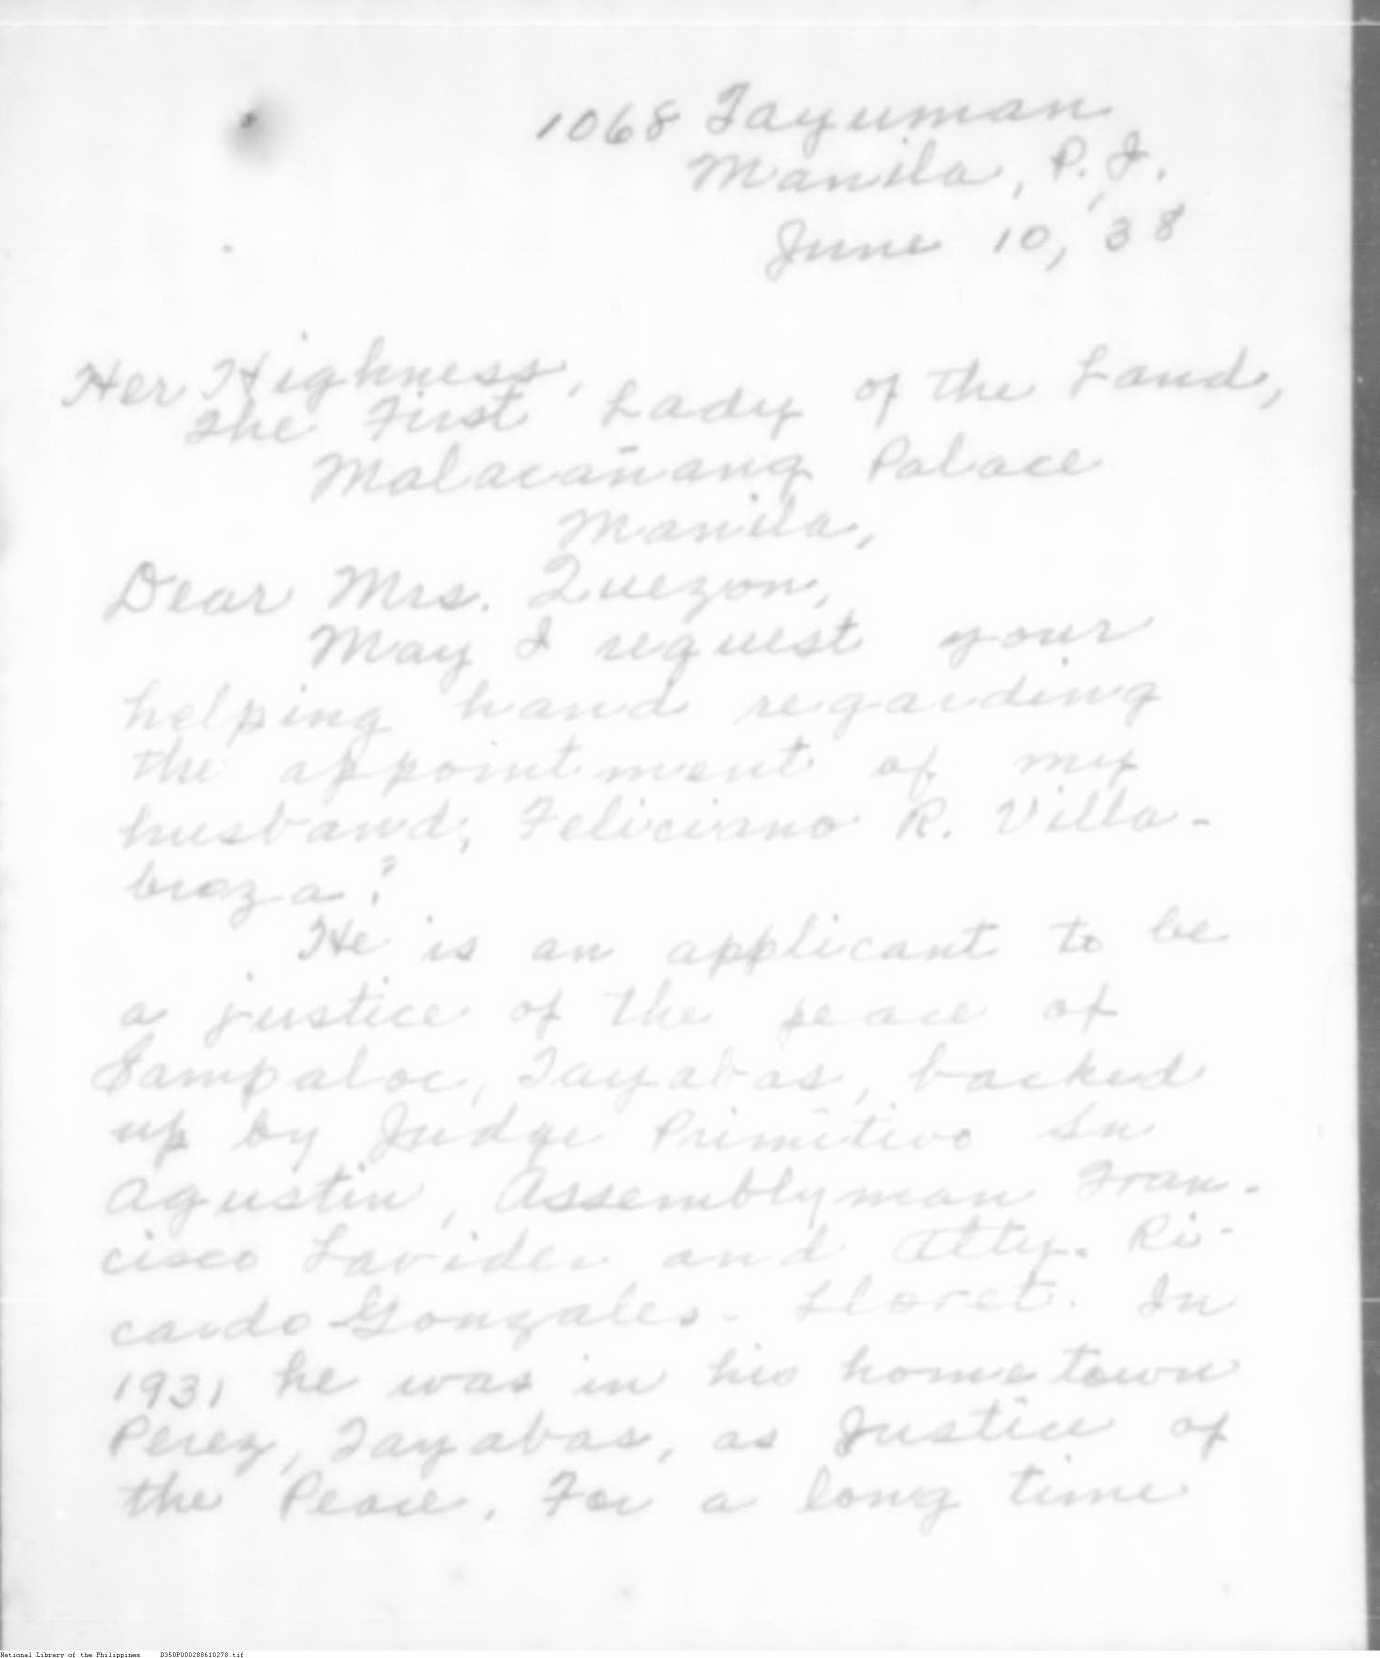 1068 Tayuman
Manila, P. I.
June 10, '38
Her Highness,
The First Lady of the Land,
Malacañang Palace
Manila,
Dear Mrs. Quezon,
May I request your
helping hand regarding
the appointment of my
husband, Feliciano R. Villa-
braza?
He is an applicant to be
a justice of the peace of
Sampaloc, Tayabas, backed
up by Judge Primitivo Sn
Agustin, Assemblyman Fran-
cisco Lavides and Atty. Ri-
cardo Gonzales-Lloret. In
1931 he was in his hometown
Perez, Tayabas, as Justice of
the Peace. For a long time
National Library of the Philippines D350P000288610278.tif